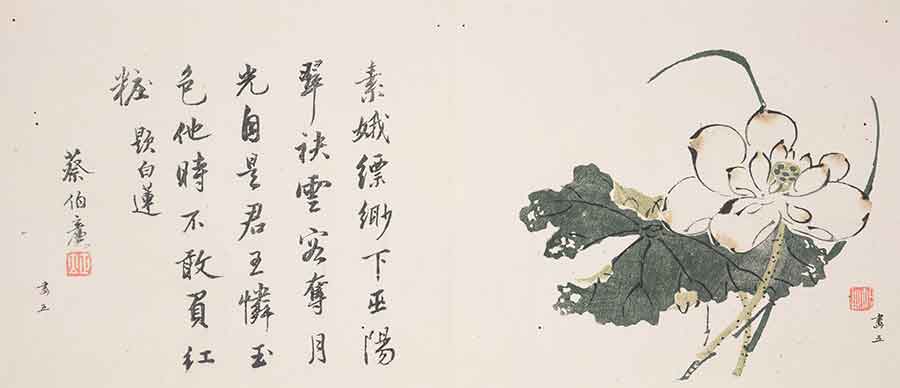 素娥縹緲下巫陽
翠袂雲容奪月
光自是君王憐玉
色他時不敢買紅
粧
題白蓮
蔡伯
畫五
畫五